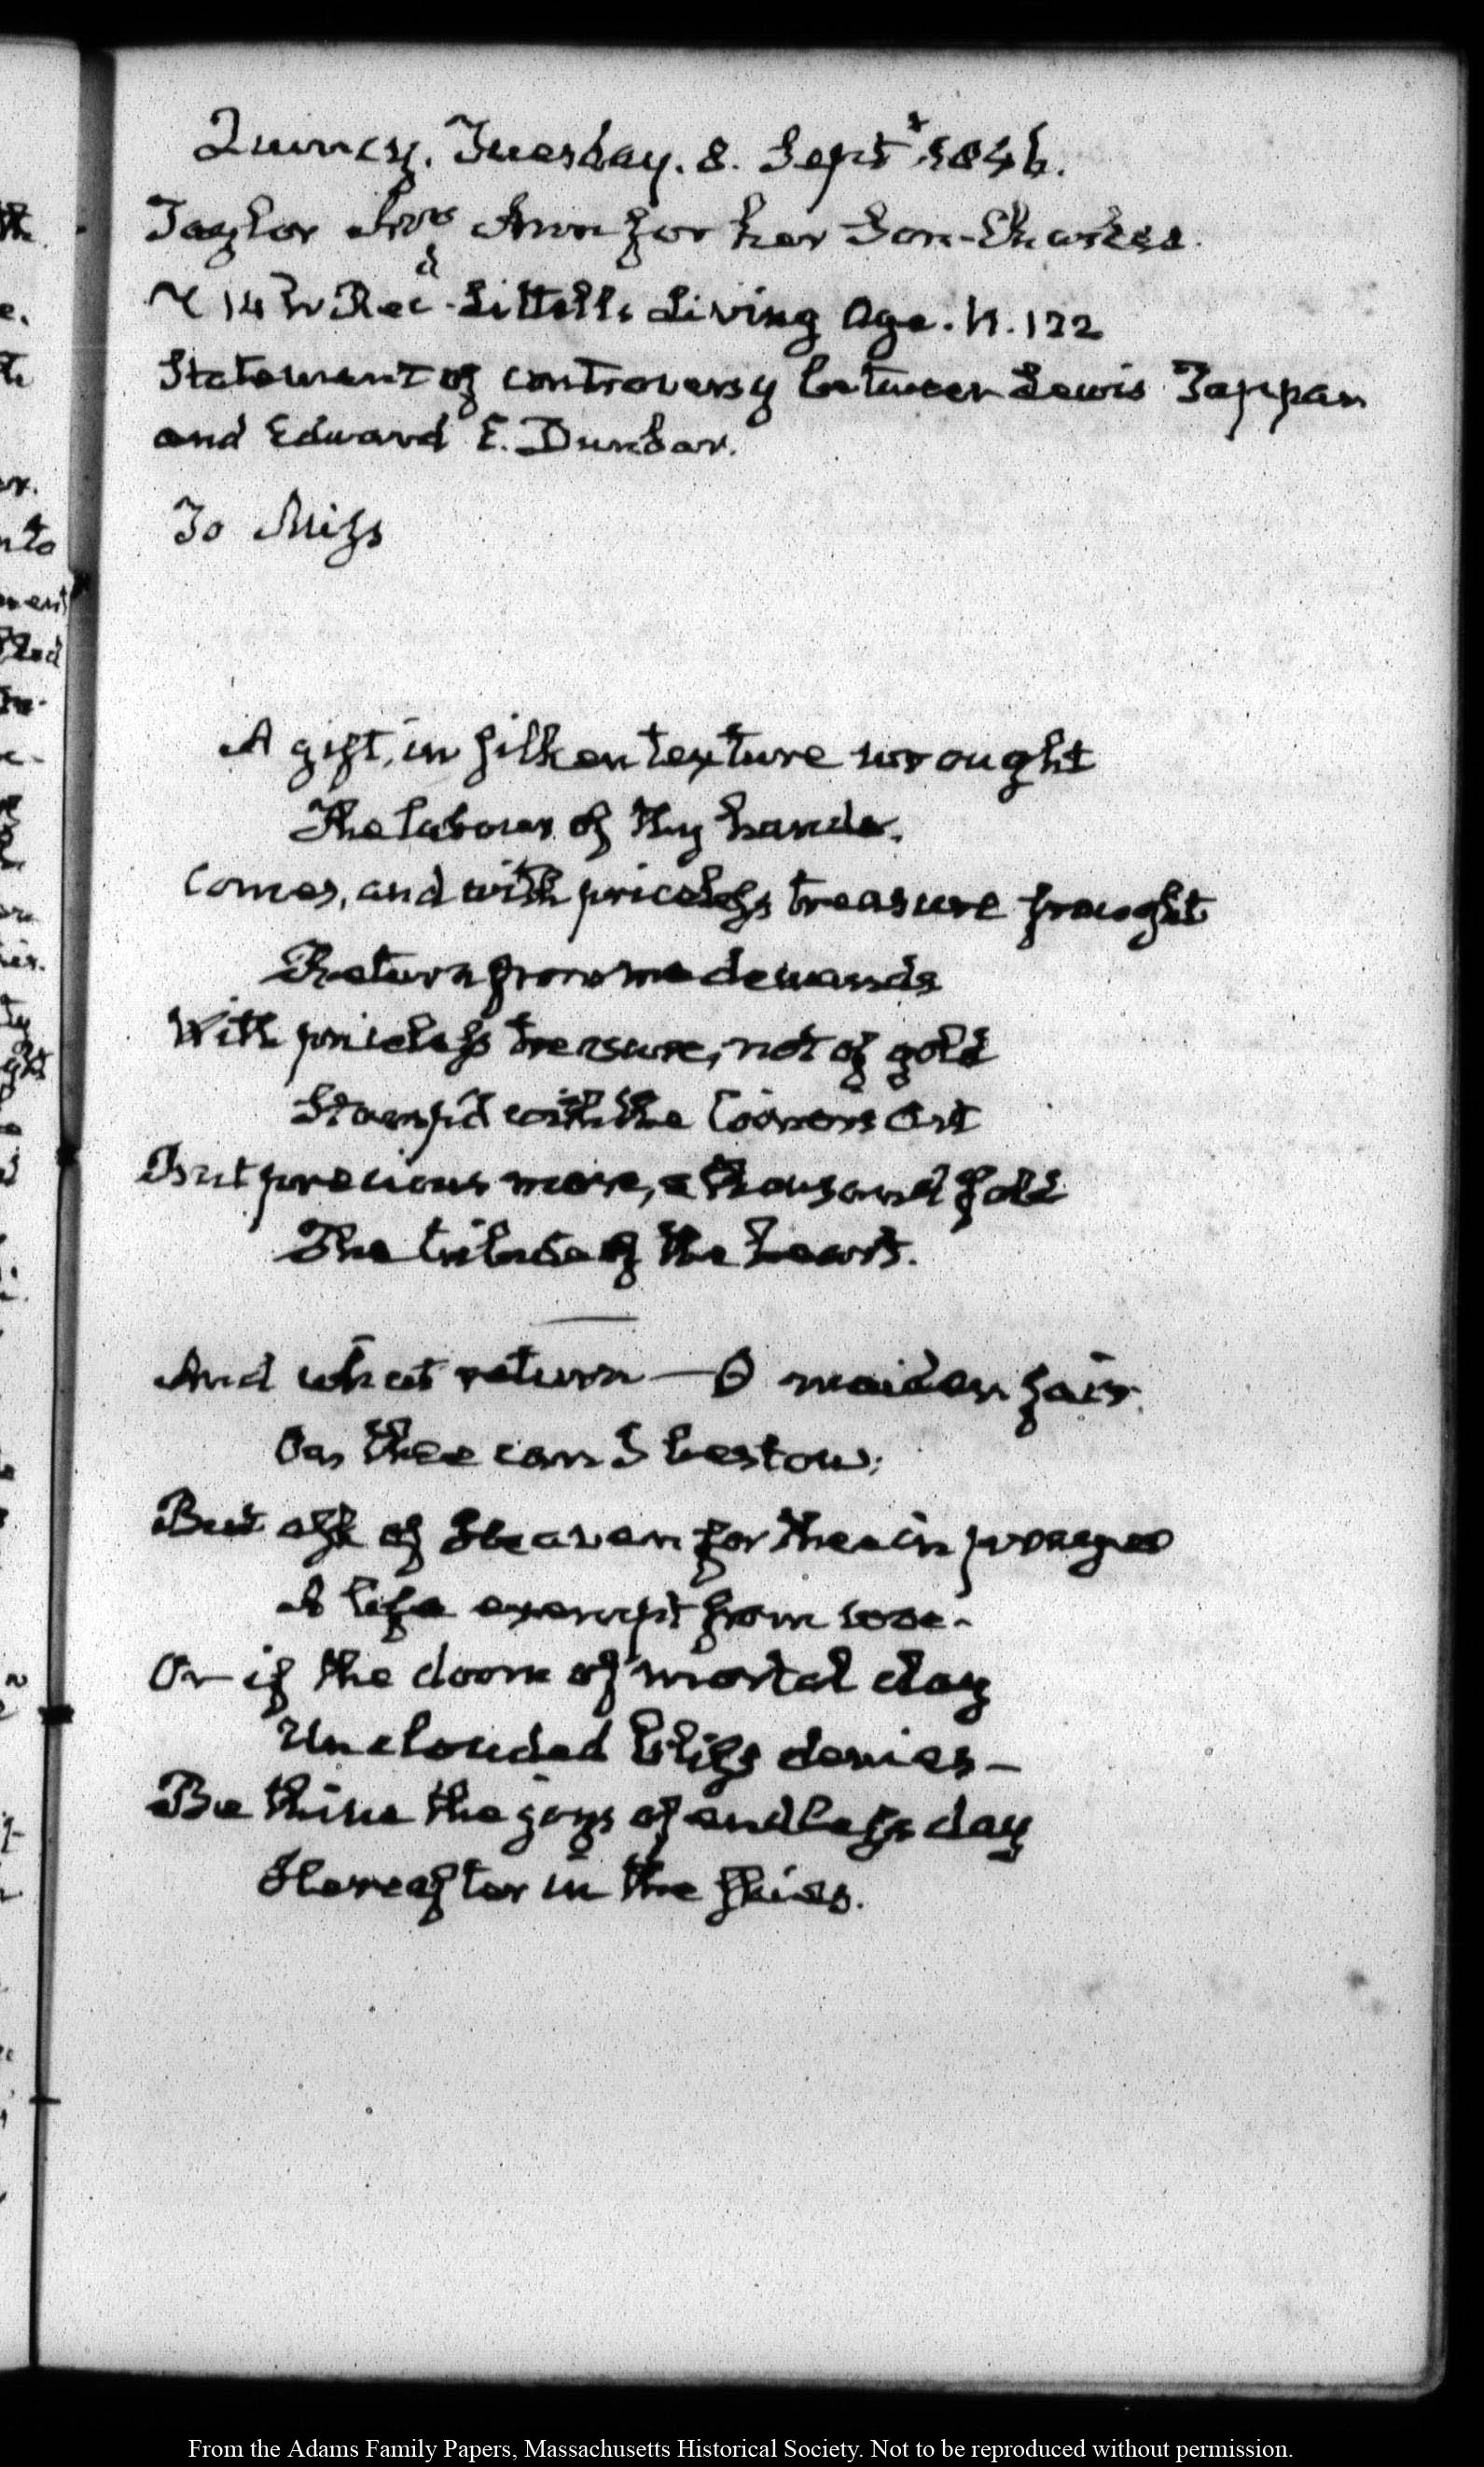 Quincy. Tuesday. 8. Septr 1846.
Taylor Mrs Ann for her Son-Charles.
14 Recd. Littells Living Age. N. 122
Statement of controversy between Lewis Tappan
and Edward E. Dunbar.
To Miss
A gift, in silken texture wrought
The labour of thy hands,
Comes, and with priceless treasure fraught
Return from me demands
With priceless treasure, not of gold
Stamp'd with the Coiners Art
But precious more, a thousand fold
The tribute of the heart.
And what return — O maiden fair
On thee can I bestow;
But ask of Heaven for thee in prayer
A life exempt from woe-
Or if the doom of mortal clay
Unclouded bliss denies-
Be thine the joys of endless day
Hereafter in the skies.
From the Adams Family Papers, Massachusetts Historical Society. Not to be reproduced without permission.